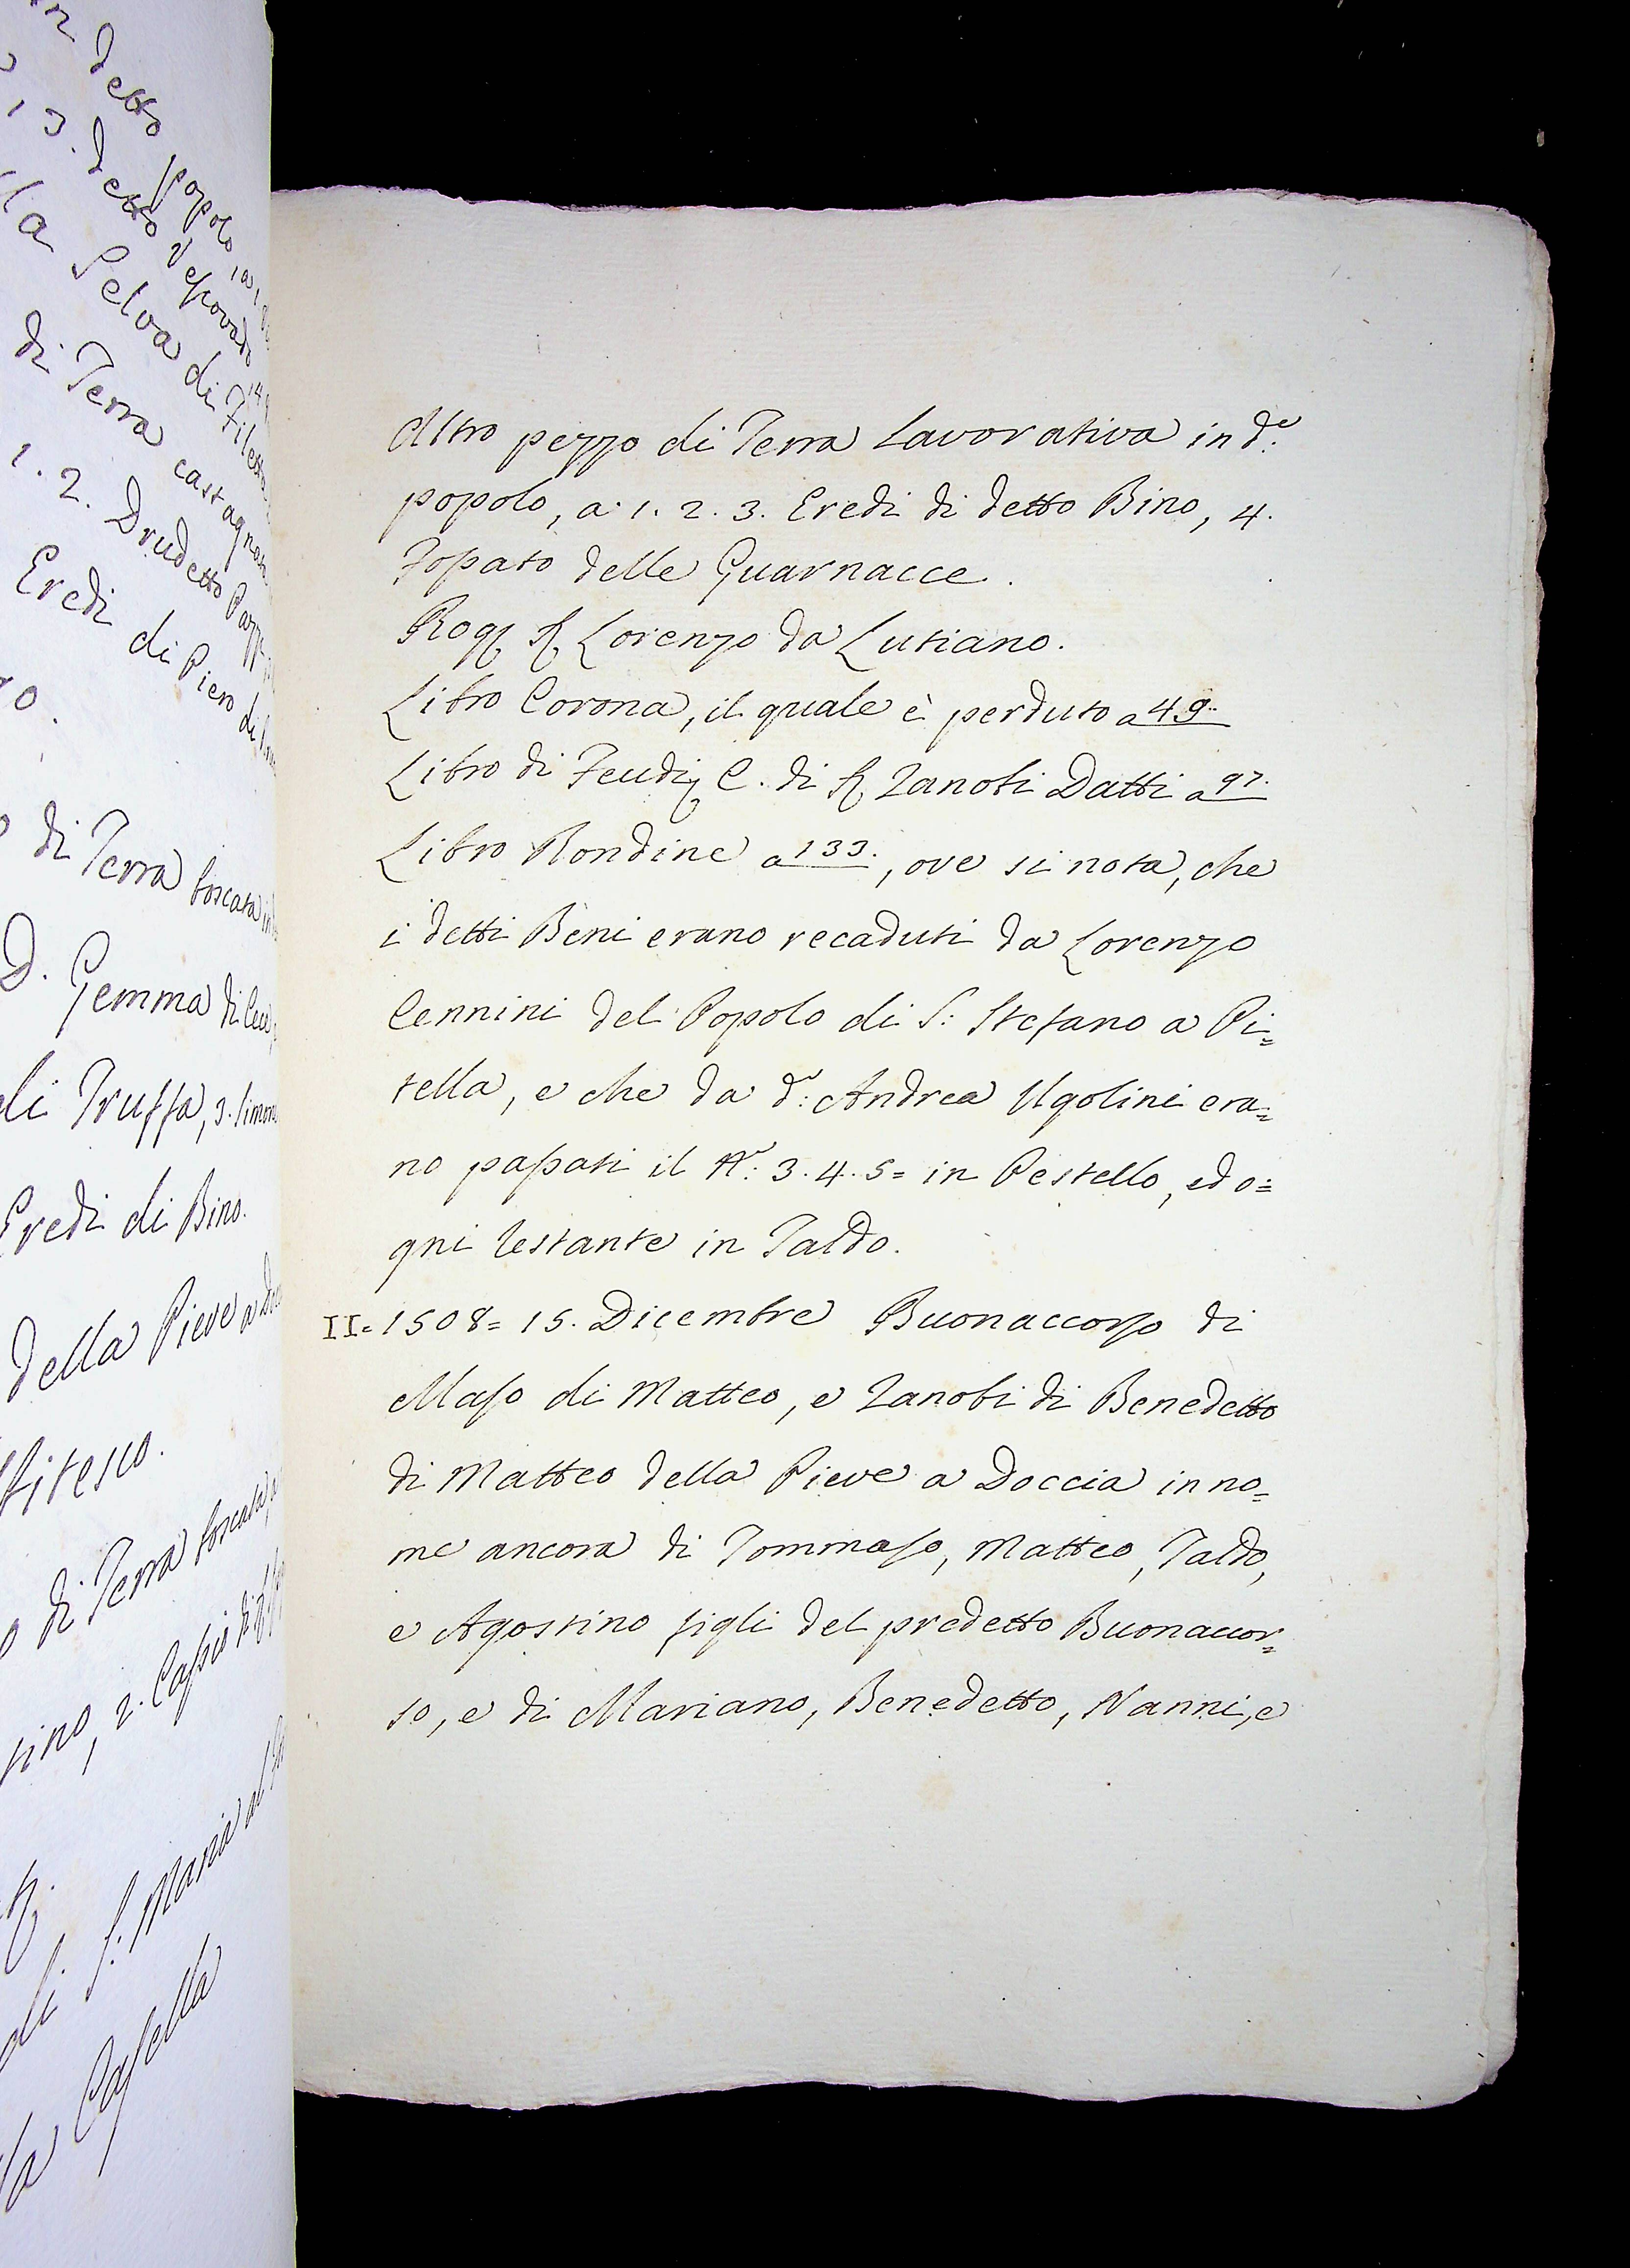 in detto popolo, a 1.
13. detto Vescovado 14
la Selva di Filetto
di Terra castagnata
1. 2. Drudetto
Eredi di Piero di
zo.
di Terra boscata in
D. Gemma di
di Truffa, 3. Simone
Eredi di Bino.
della Pieve a
fitesco.
di Terra boscata, a
tino, 2. Cassio di
di S: Maria al
la Casella
Altro pezzo di Terra Lavorativa in d.º
popolo, a: 1. 2. 3. Eredi di detto Bino, 4.
Fossato delle Guarnacce.
Rog. S. Lorenzo da Lutiano.
Libro Corona, il quale è perduto a 49.
Libro di Feudi, C. di S. Zanobi Datti a 97.
Libro Rondine a 133., ove si nota, che
i detti Beni erano recaduti da Lorenzo
Cennini del Popolo di S: Stefano a Pi=
tella, e che da d.º: Andrea Ugolini era=
no passati il N.º: 3. 4. 5= in Pestello, ed o=
gni restante in Taldo.
II= 1508= 15. Dicembre Buonaccorso di
Maso di Matteo, e Zanobi di Benedetto
di Matteo della Pieve a Doccia in no=
me ancora di Tommaso, Matteo, Taldo,
e Agostino figli del predetto Buonaccor=
so, e di Mariano, Benedetto, Nanni, e